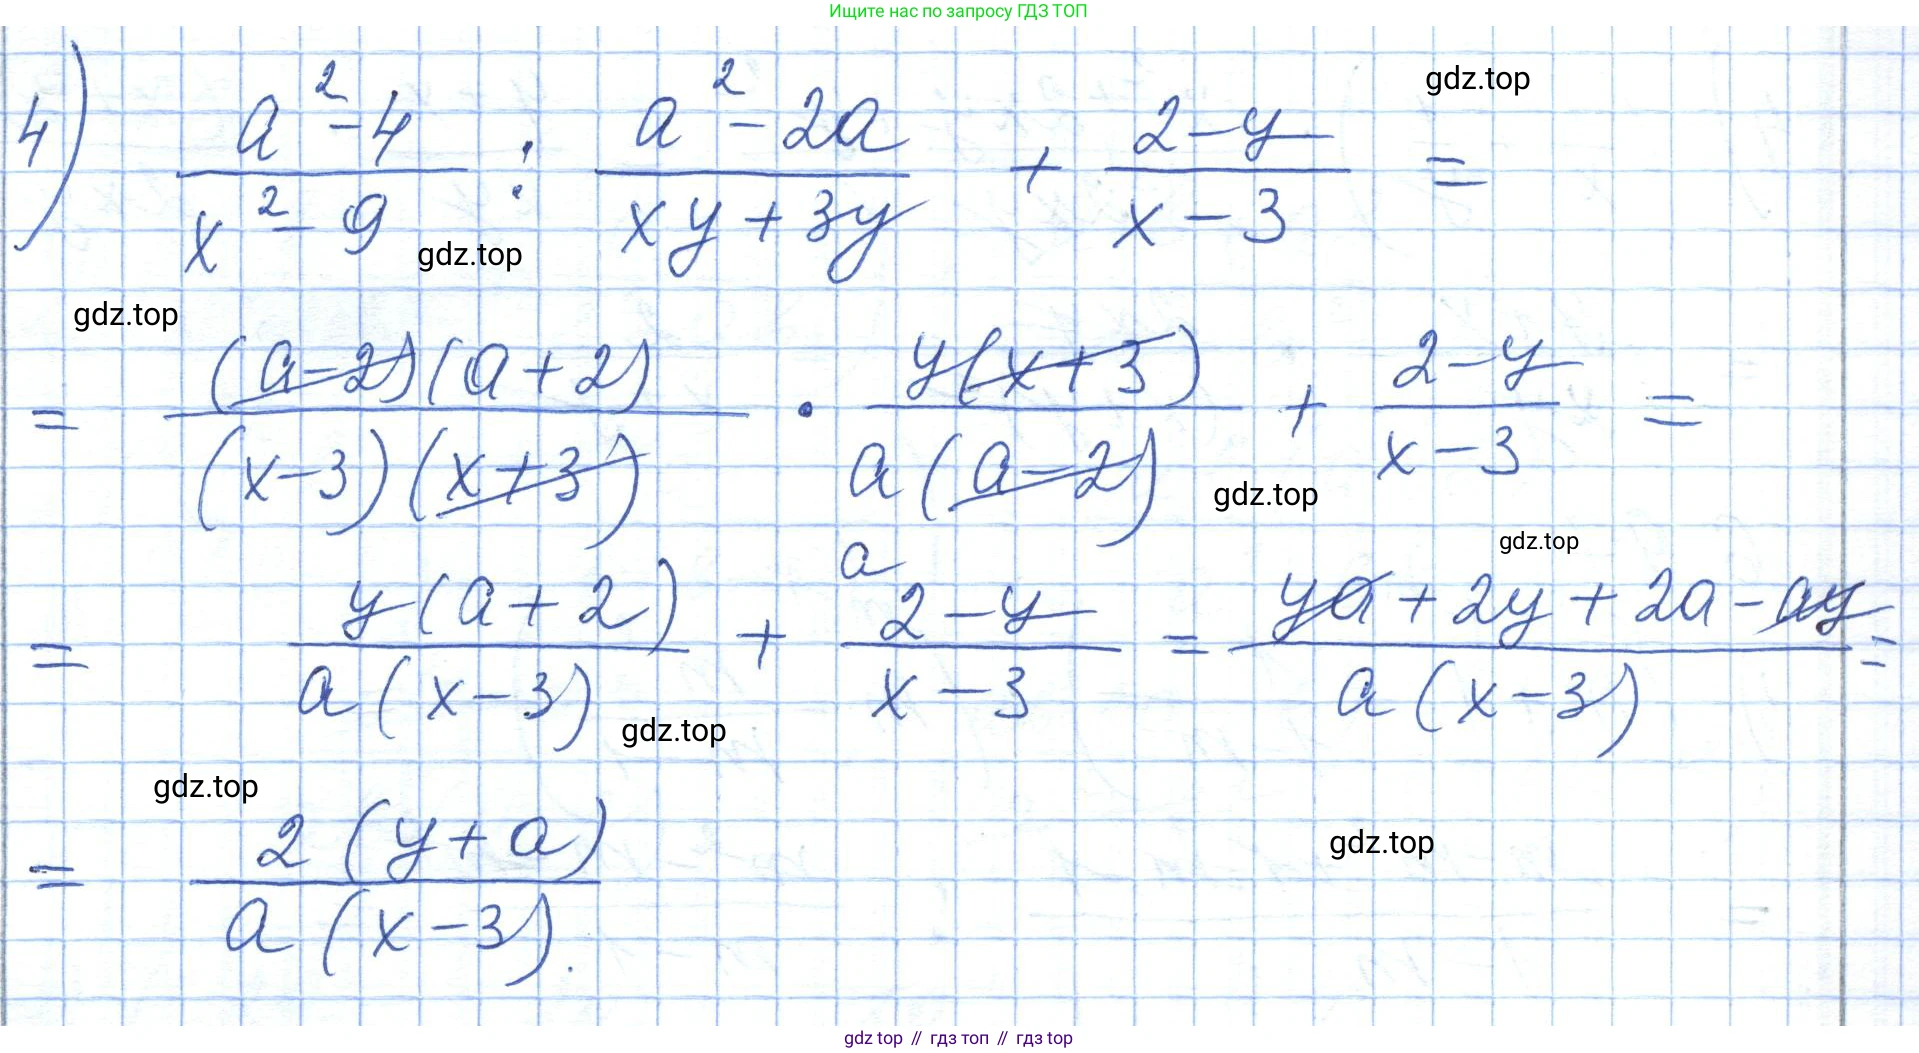 Ищите нас по запросу ГДЗ ТОП
gdz.top
4) (a² - 4)/(x² - 9) : (a² - 2a)/(xy + 3y) + (2 - y)/(x - 3) =
gdz.top
gdz.top
= ((a - 2)(a + 2))/((x - 3)(x + 3)) · (y(x + 3))/(a(a - 2)) + (2 - y)/(x - 3) =
gdz.top
gdz.top
= (y(a + 2))/(a(x - 3)) + ᵃ(2 - y)/(x - 3) = (ya + 2y + 2a - ay)/(a(x - 3)) =
gdz.top
gdz.top
= (2(y + a))/(a(x - 3)).
gdz.top
gdz.top // гдз топ // гдз top